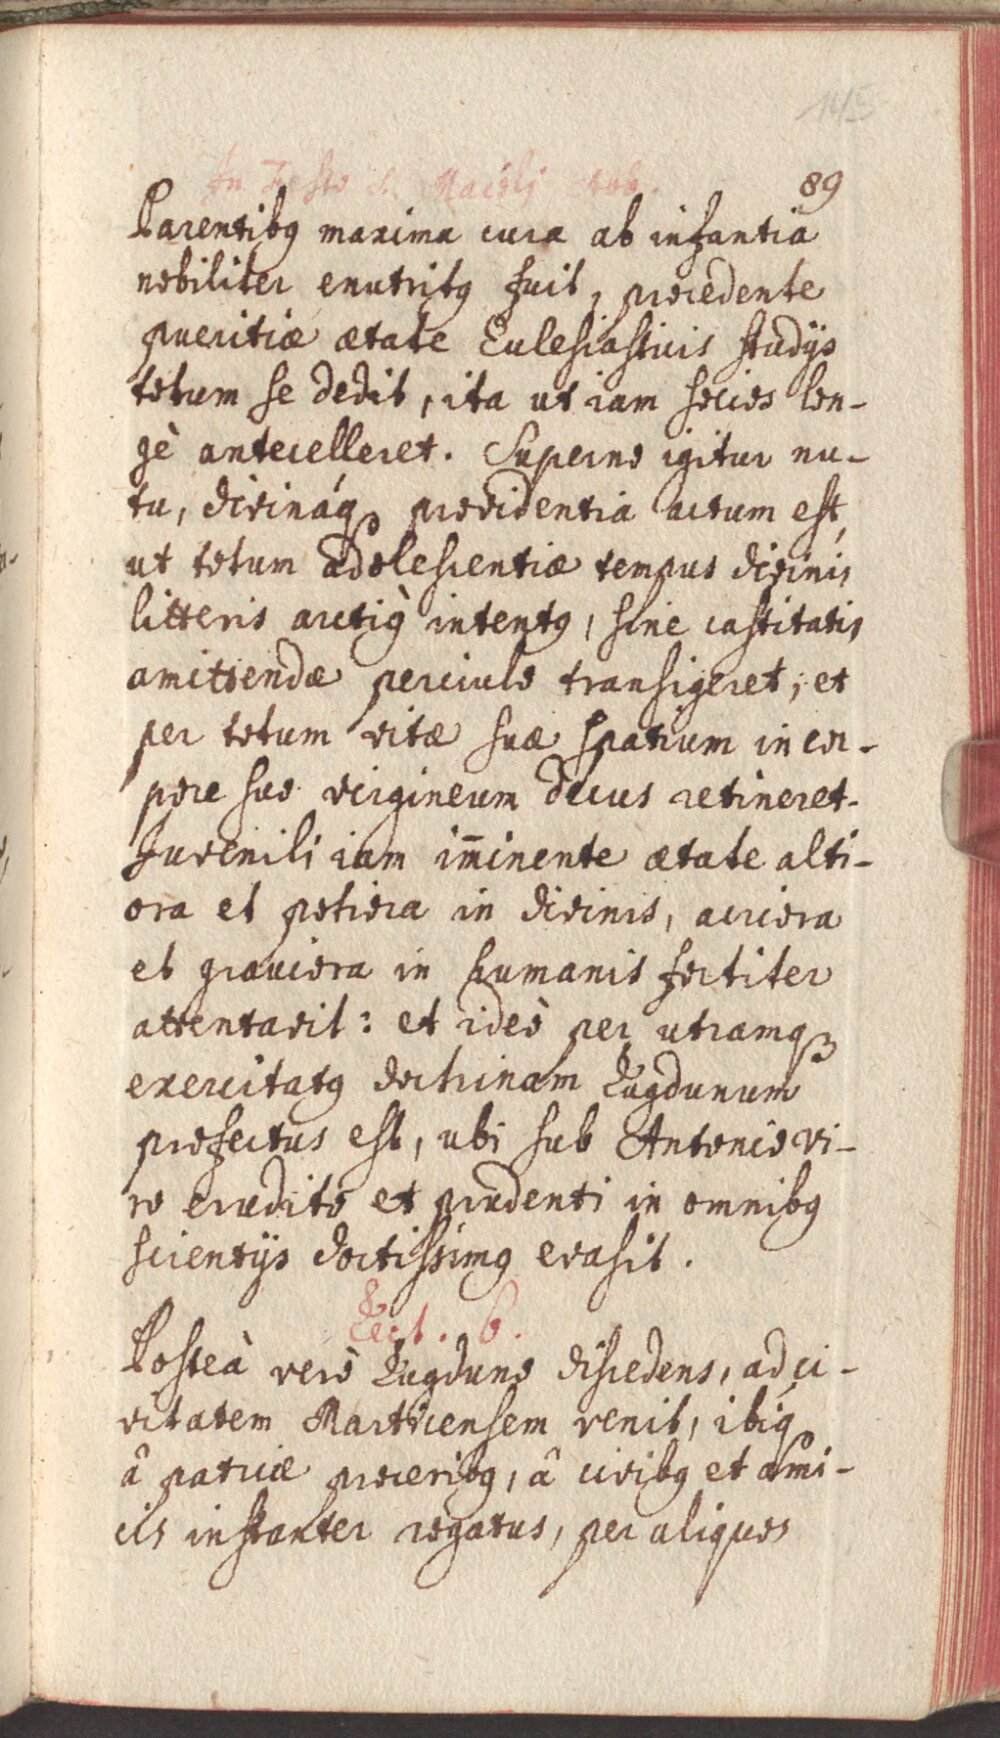 145
In Festo S. Maioli Abb. 89
Parentibꝯ maxima cura ab infantia
nobiliter enutritꝯ fuit, procedente
pueritiæ ætate Ecclesiasticis studijs
totum se dedit, ita ut iam socios lon-
gè antecelleret. Superno igitur nu-
tu, divináqꝫ providentia actum est,
ut totum adolescentiæ tempus divinis
litteris arctiꝯ̀ intentꝯ, sine castitatis
amittendæ periculo transigeret, et
per totum vitæ suæ spatium in cor-
pore suo virgineum decus retineret.
Juvenili iam im̄inente ætate alti-
ora et potiora in divinis, acriora
et graviora in humanis fortiter
attentavit: et ideò per utramqꝫ
exercitatꝯ doctrinam Lugdunum
profectus est, ubi sub Antonio vi-
ro erudito et prudenti in omnibꝯ
scientijs doctissimꝯ evasit.
Lect. 6.
Posteà verò Lugduno discedens, ad ci-
vitatem Marticensem venit, ibiqꝫ
â patriæ proceribꝯ, â civibꝯ et ami-
cis instanter rogatus, per aliquos